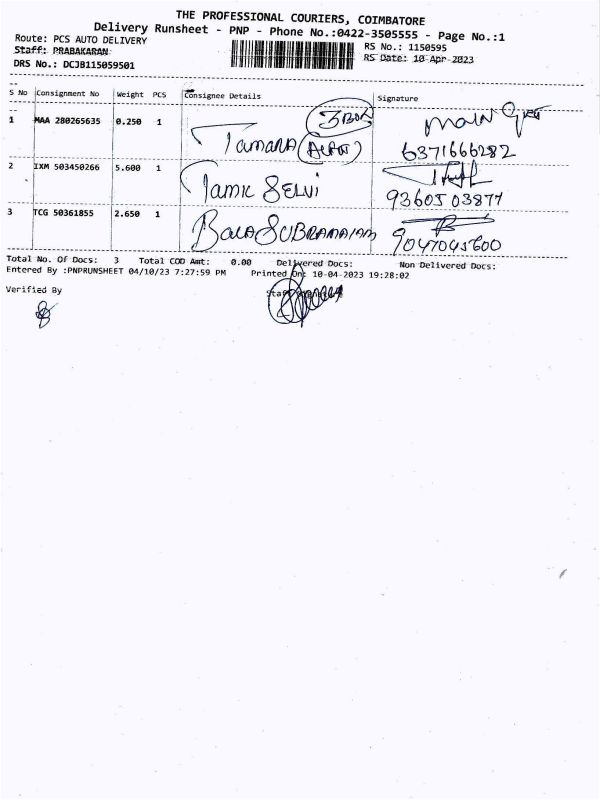 THE PROFESSIONAL COURIERS, COIMBATORE
Delivery Runsheet - PNP - Phone No.:0422-3505555 - Page No.:1
Route: PCS AUTO DELIVERY
RS No.: 1150595
Staff: PRABAKARAN
RS Date: 10-Apr-2023
DRS No.: DCJB115059501
S No Consignment No Weight PCS Consignee Details Signature
1 MAA 280265635 0.250 1 Tamara 3BOX MAIN
6371666282
2 IXM 503450266 5.600 1 Tamil SELVI
93605 03877
3 TCG 50361855 2.650 1 Bala SUBRAMANIAM
9047045600
Total No. Of Docs: 3 Total COD Amt: 0.00 Delivered Docs: Non Delivered Docs:
Entered By :PNPRUNSHEET 04/10/23 7:27:59 PM Printed On: 10-04-2023 19:28:02
Verified By